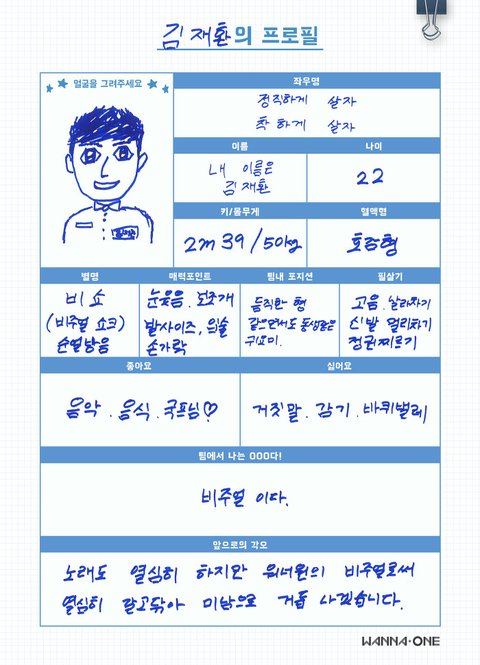 김재환의 프로필
얼굴을 그려주세요
좌우명
정직하게 살자
착하게 살자
이름
나이
내 이름은
김재환
22
키/몸무게
혈액형
2m 39 / 50kg
호랑형
별명
매력포인트
팀내 포지션
필살기
비쇼
(비주얼 쇼크)
순얼남음
눈웃음. 보조개
발사이즈, 입술
손가락
듬직한 형
같으면서도 동생같은
귀요미.
고음. 날라차기
신발 멀리차기
정권찌르기
좋아요
싫어요
음악. 음식. 국프님♡
거짓말. 감기. 바퀴벌레
팀에서 나는 OOO다!
비주얼 이다.
앞으로의 각오
노래도 열심히 하지만 워너원의 비주얼로써
열심히 갈고닦아 미남으로 거듭 나겠습니다.
WANNA·ONE